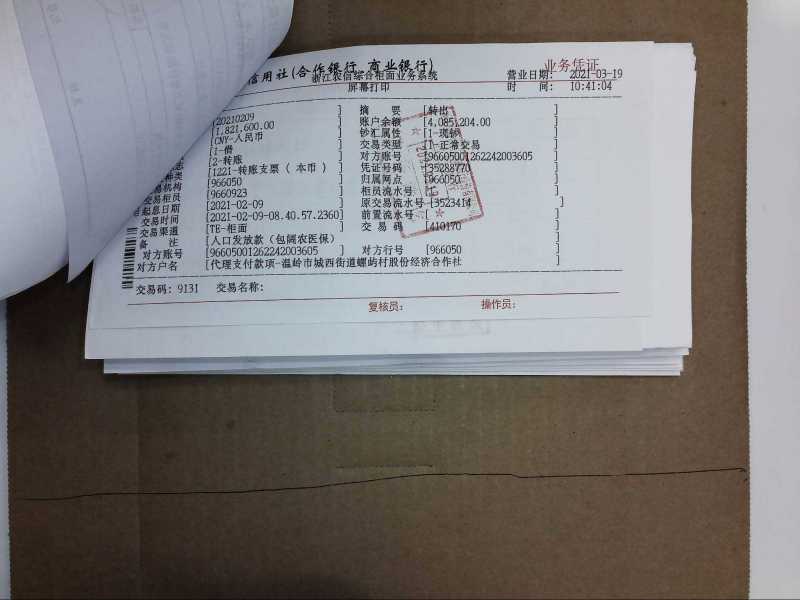 信用社(合作银行、商业银行)
业务凭证
浙江农信综合柜面业务系统
营业日期: 2021-03-19
屏幕打印
时 间: 10:41:04
[20210209 ] 摘 要 [转出 ]
[1,821,600.00 ] 账户余额 [4,085,204.00 ]
[CNY-人民币 ] 钞汇属性 [1-现钞 ]
[1-借 ] 交易类型 [1-正常交易 ]
[2-转账 ] 对方账号 [96605001262242003605 ]
种类 [1221-转账支票 ( 本币 ) ] 凭证号码 [35288770 ]
交易机构 [966050 ] 归属网点 [966050 ]
交易柜员 [9660923 ] 柜员流水号 [ ]
起息日期 [2021-02-09 ] 原交易流水号 [3523414 ]
交易时间 [2021-02-09-08.40.57.2360] 前置流水号 [ ]
交易渠道 [TE-柜面 ] 交 易 码 [410170 ]
备 注 [人口发放款（包阔农医保） ]
对方账号 [96605001262242003605 ] 对方行号 [966050 ]
对方户名 [代理支付款项-温岭市城西街道螺屿村股份经济合作社 ]
交易码: 9131 交易名称:
复核员: 操作员: